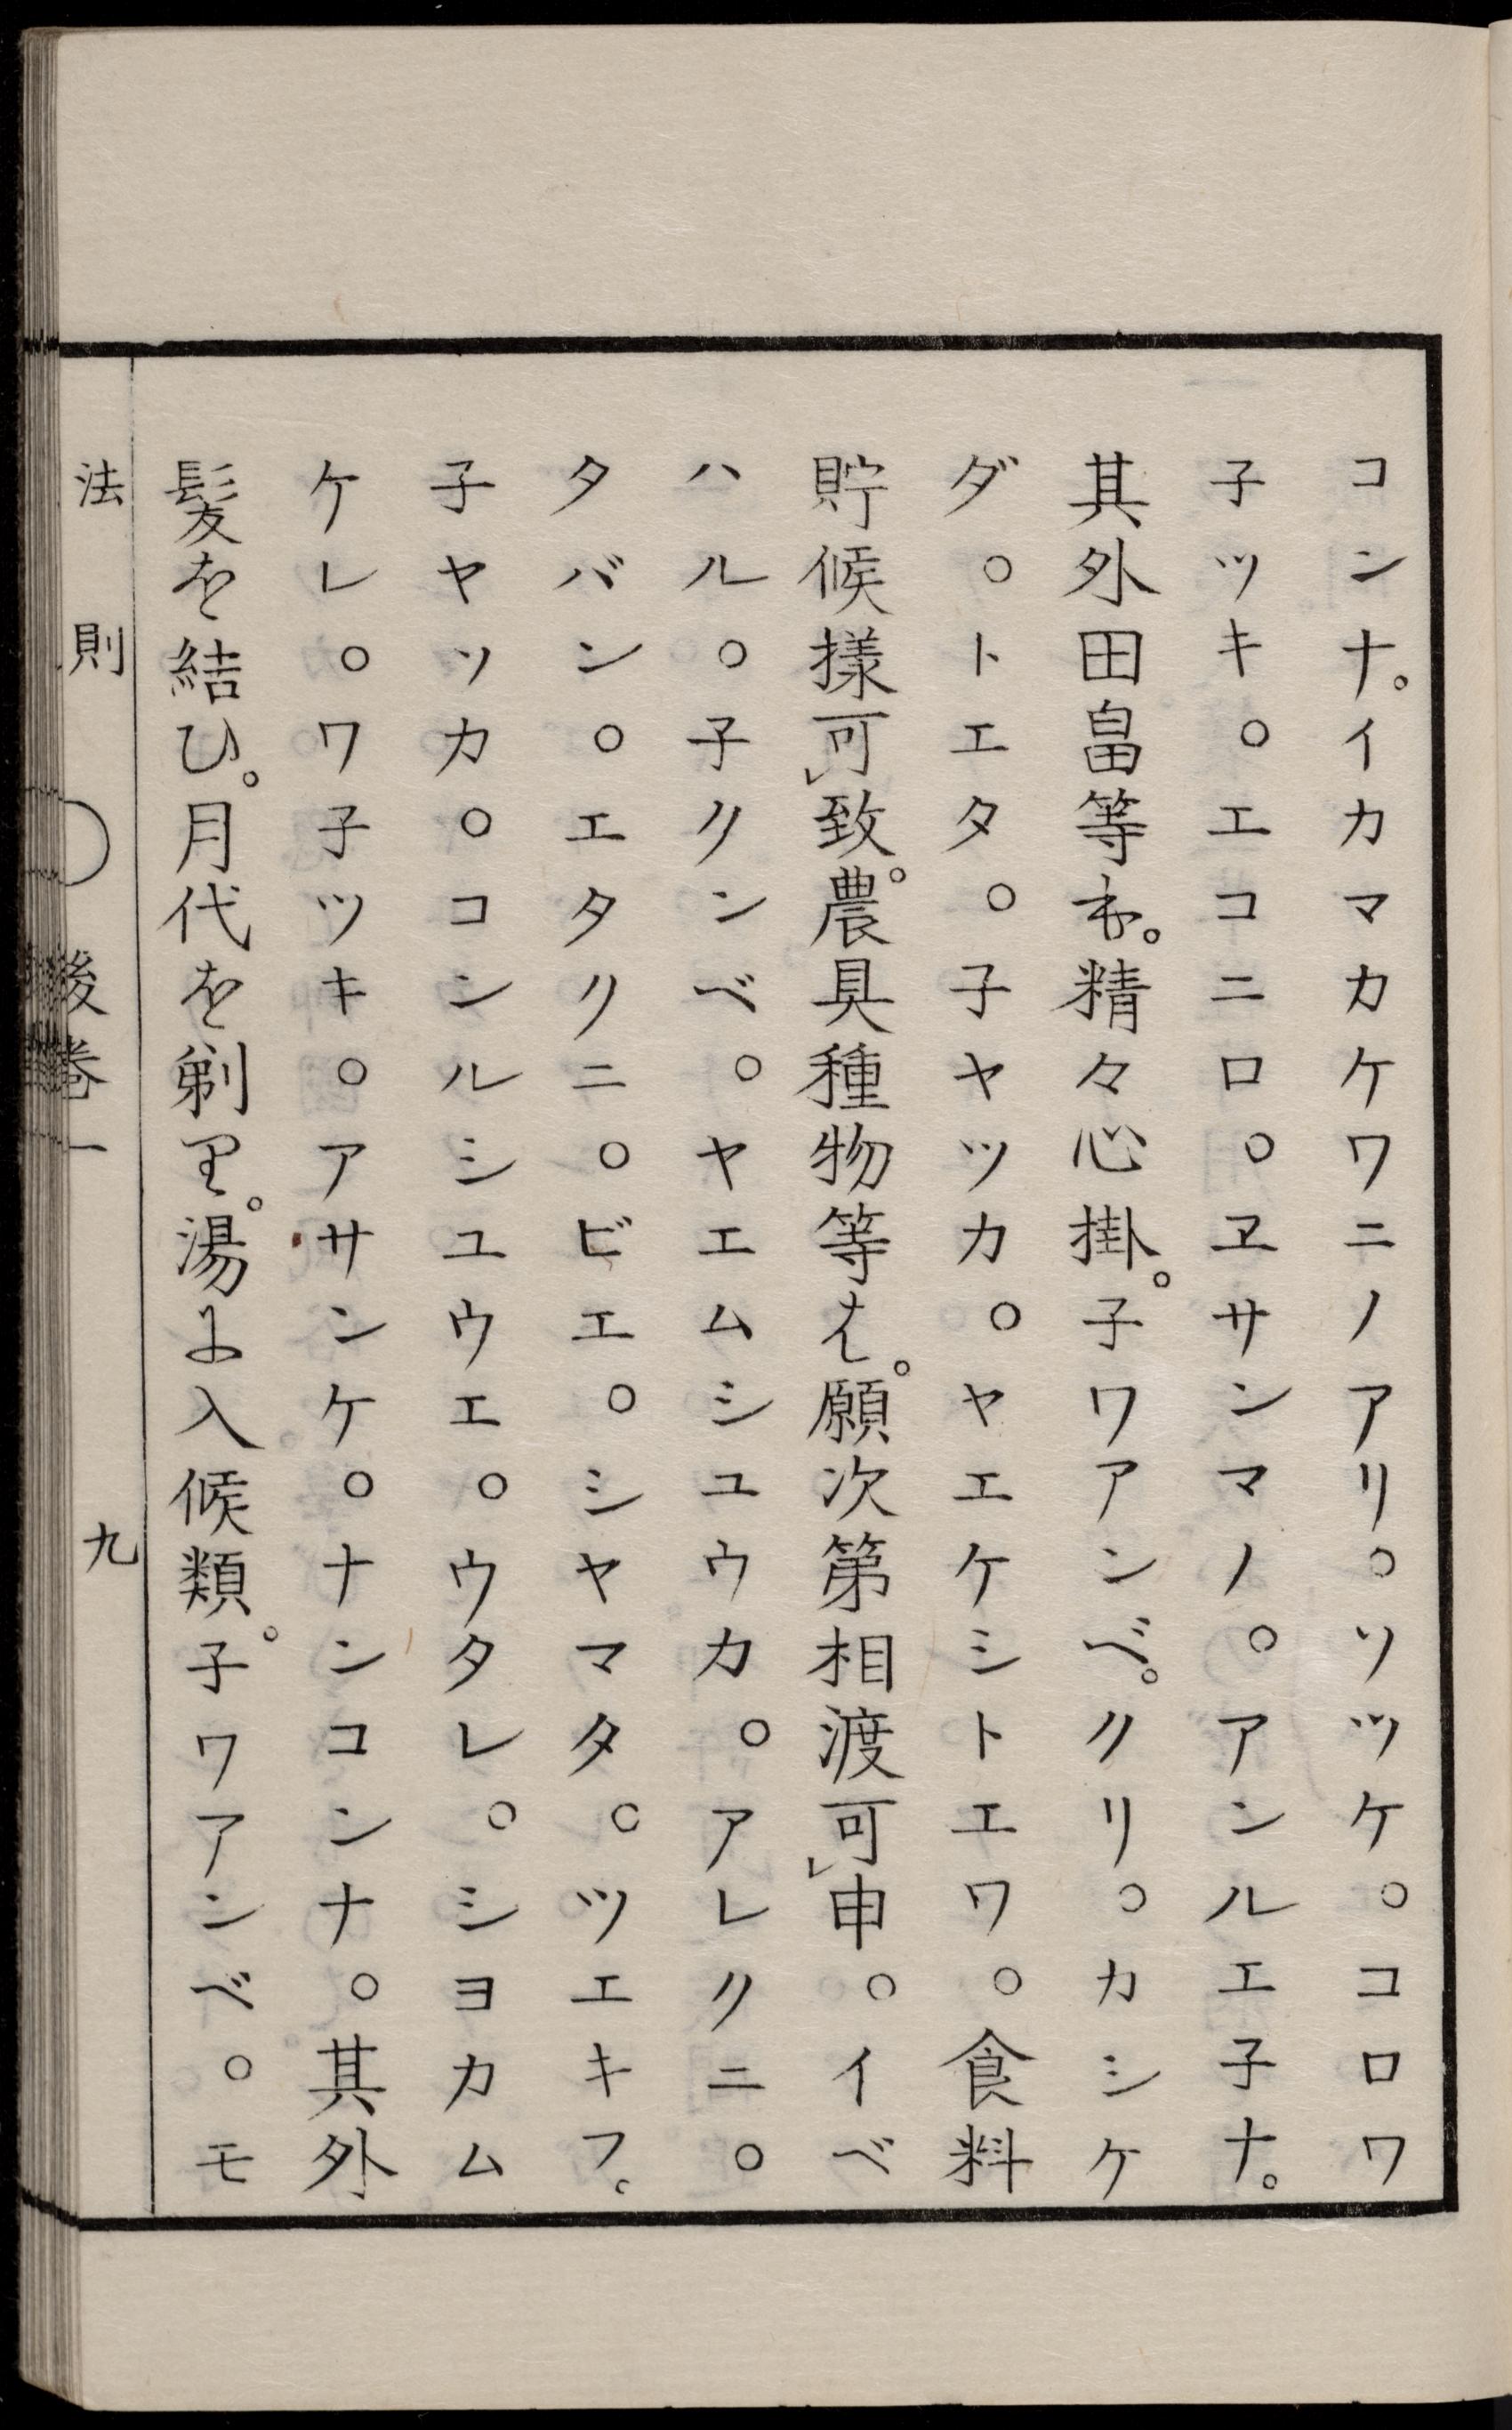 コンナ。イカマカケワニノアリ。ソツケ。コロワ
子ツキ。エコニロ。ヱサンマノ。アンルエ子ナ。
其外田畠等も。精々心掛。子ワアンベ。クリ。カシケ
ダ。トエタ。子ヤツカ。ヤエケシトエワ。食料
貯候様可㆑致。農具種物等は。願次第相渡可㆑申。イベ
ハル。子クンベ。ヤエムシユウカ。アレクニ。
タバン。エタクニ。ビエ。シヤマタ。ツエキフ。
子ヤツカ。コンルシユウエ。ウタレ。シヨカム
ケレ。ワ子ツキ。アサンケ。ナンコンナ。其外
髪を結ひ。月代を剃り。湯に入候類。子ワアンベ。モ
法則 後巻一 九